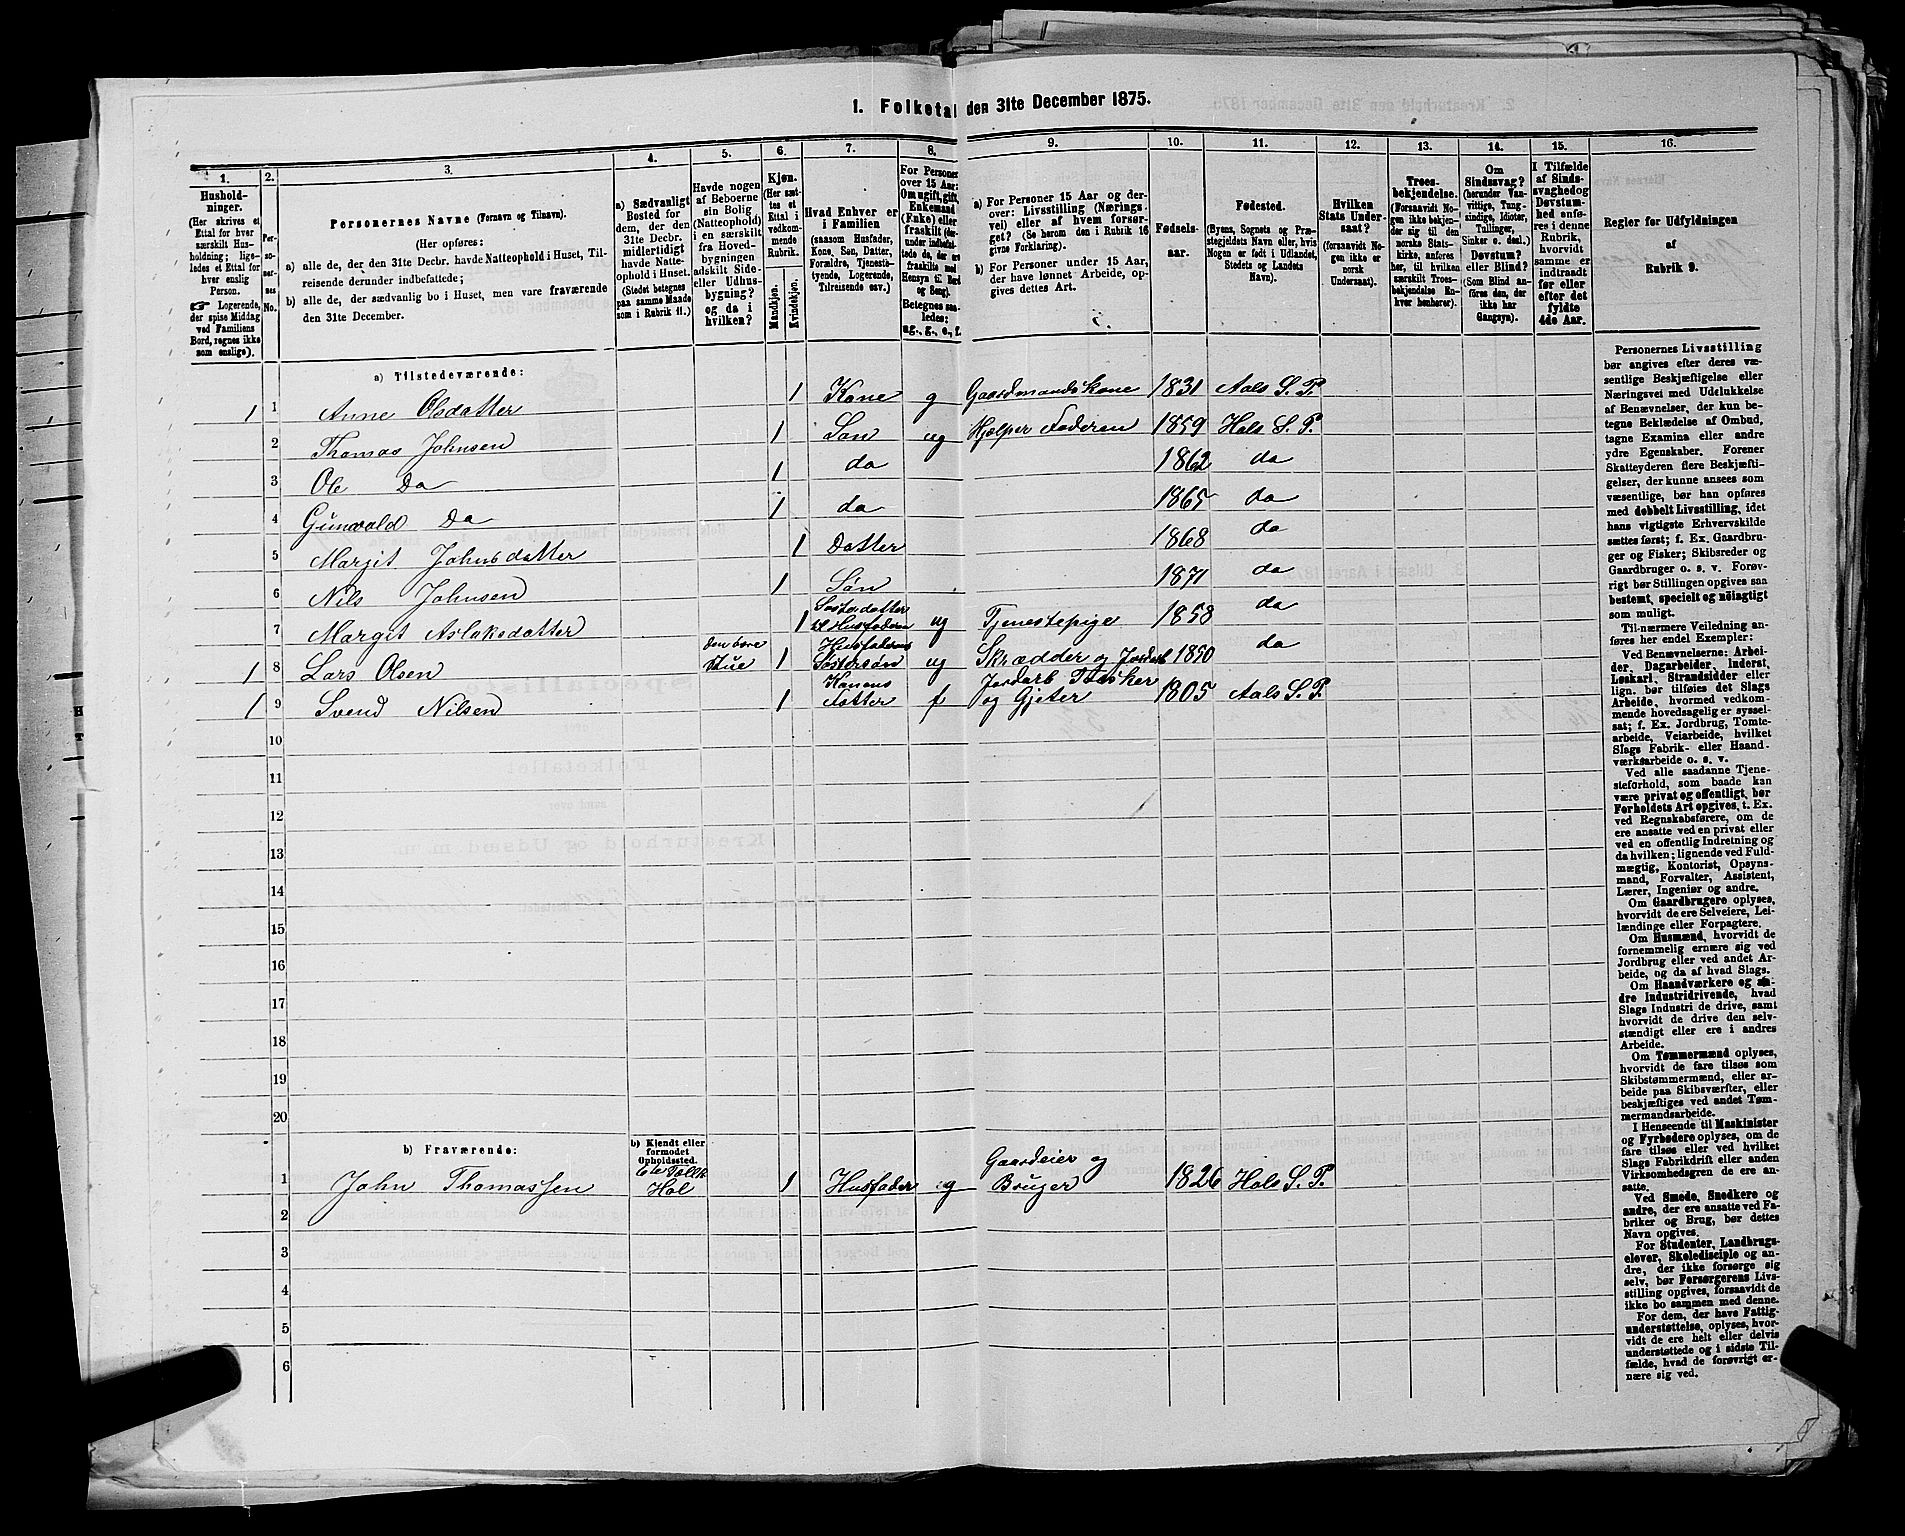 1. Folketal den 31te December 1875.
1.
2.
3.
4.
5.
6.
7.
8.
9.
10.
11.
12.
13.
14.
15.
16.
Hushold-
ninger.
(Her skrives et
Ettal for hver
særskilt Hus-
holdning; lige-
ledes et Ettal for
hver enslig
Person.
☞ Logerende,
der spise Middag
ved Familiens
Bord, regnes ikke
som enslige).
Per-
so-
ner-
nes
No.
Personernes Navne (Fornavn og Tilnavn).
(Her opføres:
a) alle de, der den 31te Decbr. havde Natteophold i Huset, Til-
reisende derunder indbefattede;
b) alle de, der sædvanlig bo i Huset, men vare fraværende
den 31te December.
a) Sædvanligt
Bosted for
dem, der den
31te Decbr.
midlertidigt
havde Natte-
ophold i Huset.
(Stedet betegnes
paa samme Maade
som i Rubrik 11.)
Havde nogen
af Beboerne
sin Bolig
(Natteophold)
i en særskilt
fra Hoved-
bygningen
adskilt Side-
eller Udhus-
bygning?
og da i
hvilken?
Kjøn.
(Her sæt-
tes et
Ettal i
vedkom-
mende
Rubrik.
Mandkjøn.
Kvindekjøn.
Hvad Enhver er
i Familien
(saasom Husfader,
Kone, Søn, Datter,
Forældre, Tjeneste-
tyende, Logerende,
Tilreisende osv.)
For Personer
over 15 Aar:
Om ugift, gift,
Enkemand
(Enke) eller
fraskilt (der-
under indbefat-
tede de, der ere
fraskilte med
Hensyn til Bord
og Seng).
Betegnes saa-
ledes:
ug., g., e., f.
a) For Personer 15 Aar og der-
over: Livsstilling (Nærings-
vei) eller af hvem forsør-
get? (Se herom den i Rubrik 16
givne Forklaring).
b) For Personer under 15 Aar,
der have lønnet Arbeide, op-
gives dettes Art.
Fødsels-
aar.
Fødested.
(Byens, Sognets og Præ-
stegjeldets Navn eller, hvis
Nogen er født i Udlandet,
Stedets og Landets
Navn).
Hvilken
Stats Under-
saat?
(forsaavidt No-
gen ikke er
norsk
Undersaat).
Troes-
bekjendelse.
(Forsaavidt No-
gen ikke bekjen-
der sig til den
norske Stats-
kirke, anføres
her, til hvilken
særskilt Troes-
bekjendelse En-
hver henhører).
Om
Sindssvag?
(herunder Van-
vittige, Tung-
sindige, Idioter,
Tullinger,
Sinker o. desl.)
Døvstum?
eller Blind?
(Som Blind an-
føres den, der
ikke har
Gangsyn).
I Tilfælde
af Sinds-
svaghed og
Døvstum-
hed anfø-
res i denne
Rubrik,
hvorvidt
samme er
indtraadt
før eller
efter det
fyldte
4de Aar.
Regler for Udfyldningen
af
Rubrik 9.
a) Tilstedeværende:
1 1 Anne Olsdatter 1 Kone g Gaardmandskone 1831 Aals S. P.
2 Thomas Johnsen 1 Søn ug Hjælper Faderen 1859 Hols S. P.
3 Ole Do 1 do 1862 do
4 Gunvald Do 1 do 1865 do
5 Margit Johnsdatter 1 Datter 1868 do
6 Nils Johnsen 1 Søn 1871 do
7 Margit Aslaksdatter 1 til Husfaderen ug Tjenestepige 1858 do
8 1 Lars Olsen Stue 1 Husfaderens Søstersøn ug Skrædder og Jordarb do
9 1 Svend Nilsen 1 Konens Fatter f Jordarb og Gjeter 1805 Aals S. P.
10
11
12
13
14
15
16
17
18
19
20
b) Fraværende:
b) Kjendt eller
formodet
Opholdssted.
1 John Thomassen Hol 1 Husfader g Gaardeier og Bruger 1826 Hols S. P.
2
3
4
5
6
Personernes Livsstilling
bør angives efter deres væ-
sentlige Beskjæftigelse eller
Næringsvei med Udelukkelse
af Benævnelser, der kun be-
tegne Beklædelse af Ombud,
tagne Examina eller andre
ydre Egenskaber. Forener
Skatteyderen flere Beskjæfti-
gelser, der kunne ansees som
væsentlige, bør han opføres
med dobbelt Livsstilling, idet
hans vigtigste Erhvervskilde
sættes først; f. Ex. Gaardbru-
ger og Fisker; Skibsreder og
Gaardbruger o. s. v. Forøv-
rigt bør Stillingen opgives saa
bestemt, specielt og nøiagtigt
som muligt.
Til nærmere Veiledning an-
føres her endel Exempler:
Ved Benævnelserne: Arbei-
der, Dagarbeider, Inderst,
Løskarl, Strandsidder eller
lign. bør tilføies det Slags
Arbeide, hvormed vedkom-
mende hovedsagelig er syssel-
sat; f. Ex. Jordbrug, Tomte-
arbeide, Veiarbeide, hvilket
Slags Fabrik- eller Haand-
værksarbeide o. s. v.
Ved alle saadanne Tjene-
steforhold, som baade kan
være privat og offentligt, bør
Forholdets Art opgives, t. Ex.
ved Regnskabsførere, om de
ere ansatte ved en privat eller
ved en offentlig Indretning og
da hvilken; lignende ved Fuld-
mægtig, Kontorist, Opsyns-
mand, Forvalter, Assistent,
Lærer, Ingeniør og andre.
Om Gaardbrugere oplyses,
hvorvidt de ere Selveiere, Lei-
lændinge eller Forpagtere.
Om Husmænd, hvorvidt de
fornemmelig ernære sig ved
Jordbrug eller ved andet Ar-
beide, og da af hvad Slags.
Om Haandværkere og an-
dre Industridrivende, hvad
Slags Industri de drive, samt
hvorvidt de drive den selv-
stændigt eller ere i andres
Arbeide.
Om Tømmermænd oplyses,
hvorvidt de fare tilsøs som
Skibstømmermænd, eller ar-
beide paa Skibsværfter, eller
beskjæftiges ved andet Tøm-
mermandsarbeide.
I Henseende til Maskinister
og Fyrbødere oplyses, om de
fare tilsøs eller ved hvilket
Slags Fabrikdrift eller anden
Virksomhedsgren de ere an-
satte.
Ved Smede, Snedkere og
andre, der ere ansatte ved Fa-
briker og Brug, bør dettes
Navn opgives.
For Studenter, Landbrugs-
elever, Skoledisciple og an-
dre, der ikke forsørge sig
selv, bør Forsørgerens Livs-
stilling opgives, forsaavidt de
ikke bo sammen med denne.
For dem, der have Fattig-
understøttelse, oplyses, hvor-
vidt de ere helt eller delvis
understøttede og i sidste Til-
fælde, hvad de forøvrigt er-
nære sig ved.